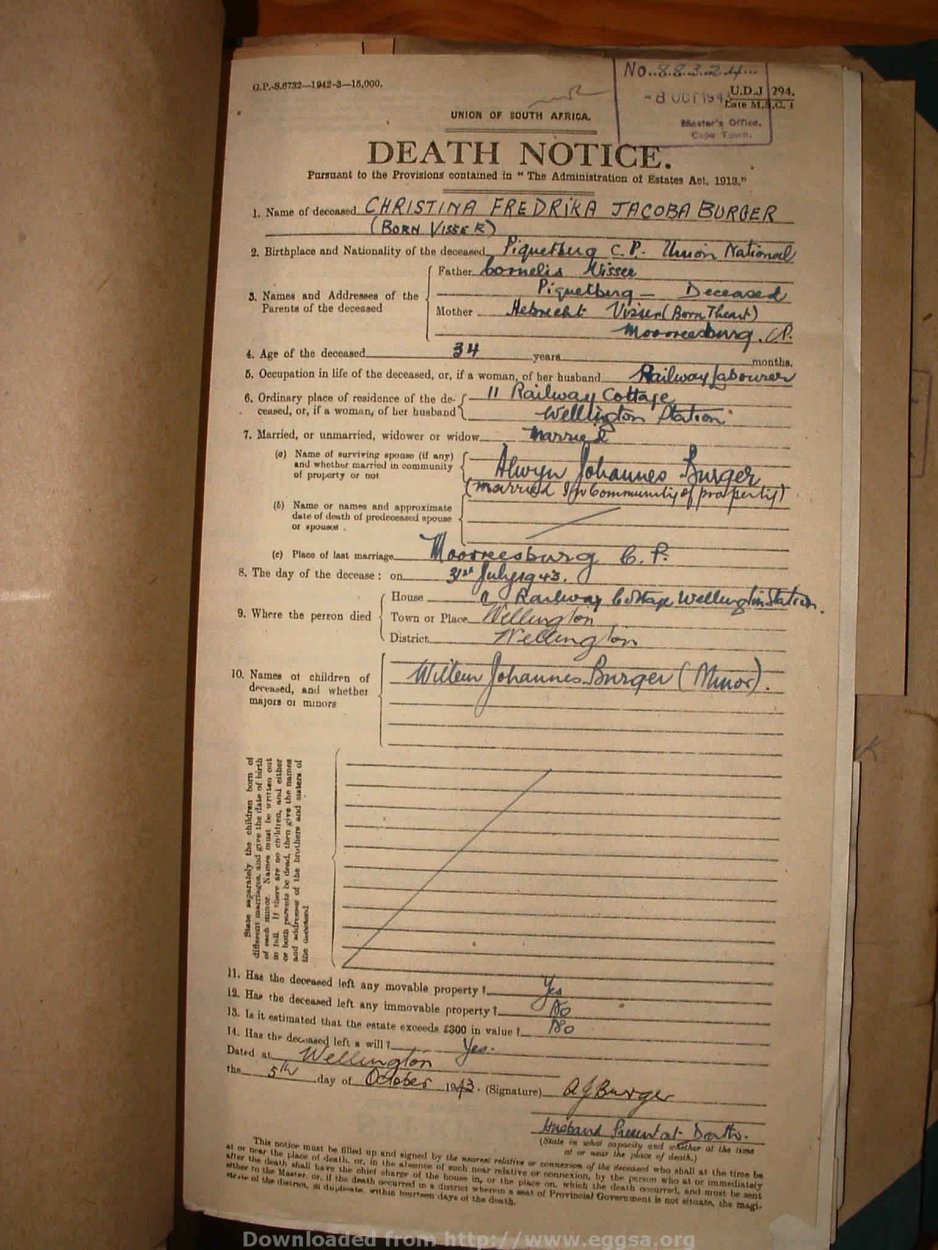 G.P.-S.6732—1942-3—15,000.
No. 88324
- 8 OCT 194
U.D.J 294.
Late M.S.C. 1
Master's Office.
Cape Town.
UNION OF SOUTH AFRICA.
DEATH NOTICE.
Pursuant to the Provisions contained in "The Administration of Estates Act, 1913."
1. Name of deceased CHRISTINA FREDRIKA JACOBA BURGER
(BORN VISSER)
2. Birthplace and Nationality of the deceased Piquetberg C.P. Union National
3. Names and Addresses of the Parents of the deceased
Father Cornelis Visser
Piquetberg — Deceased
Mother Hebrecht Visser (Born Theart)
Moorreesburg. C.P.
4. Age of the deceased 34 years months.
5. Occupation in life of the deceased, or, if a woman, of her husband Railway labourer
6. Ordinary place of residence of the de- 11 Railway Cottage
ceased, or, if a woman, of her husband Wellington Station
7. Married, or unmarried, widower or widow Married
(a) Name of surviving spouse (if any)
and whether married in community
of property or not
Alwyn Johannes Burger
(married in Community of property)
(b) Name or names and approximate
date of death of predeceased spouse
or spouses .
(c) Place of last marriage Moorreesburg C.P.
8. The day of the decease: on 31st July 1943.
9. Where the person died
House 11 Railway Cottage Wellington Station.
Town or Place Wellington
District Wellington
10. Names of children of
deceased, and whether
majors or minors
Willem Johannes Burger (Minor).
State separately the children born of
different marriages, and give the date of birth
of each minor. Names must be written out
in full. If there are no children, and either
or both parents be dead, then give the names
and addresses of the brothers and sisters of
the deceased
11. Has the deceased left any movable property? Yes
12. Has the deceased left any immovable property? No
13. Is it estimated that the estate exceeds £300 in value? No
14. Has the deceased left a will? Yes.
Dated at Wellington
the 5th day of October 1943. (Signature) A J Burger
Husband Present at Death.
(State in what capacity and whether at the time
at or near the place of death.)
This notice must be filled up and signed by the nearest relative or connexion of the deceased who shall at the time be
at or near the place of death, or, in the absence of such near relative or connexion, by the person who at or immediately
after the death shall have the chief charge of the house in, or the place on, which the death occurred, and must be sent
either to the Master, or, if the death occurred in a district wherein a seat of Provincial Government is not situate, the magi-
strate of the district, in duplicate, within fourteen days of the death.
Downloaded from http://www.eggsa.org